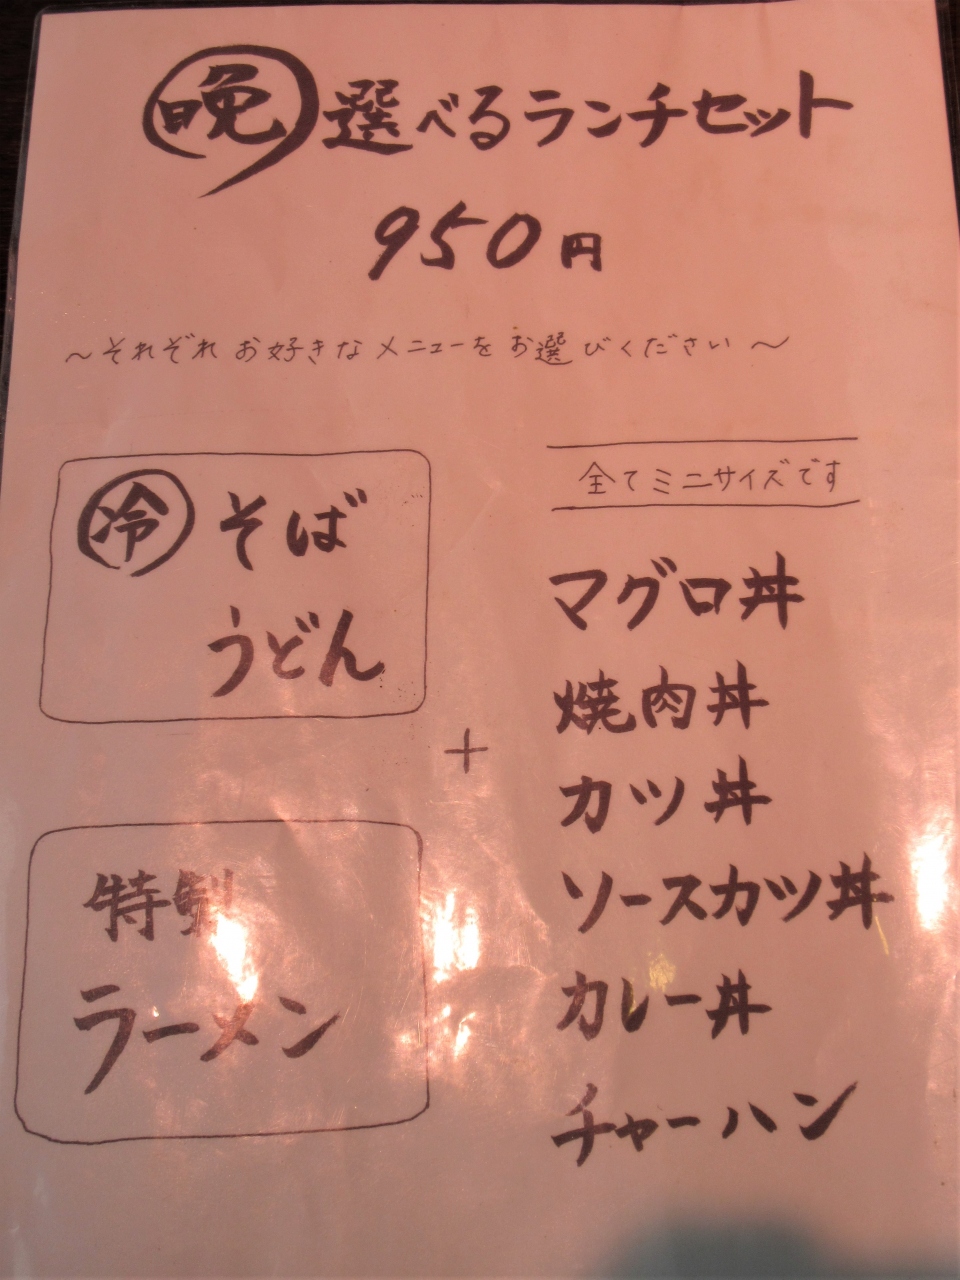 晩 選べるランチセット
950円
～それぞれお好きなメニューをお選びください～
冷 そば
うどん
+
特製
ラーメン
全てミニサイズです
マグロ丼
焼肉丼
カツ丼
ソースカツ丼
カレー丼
チャーハン